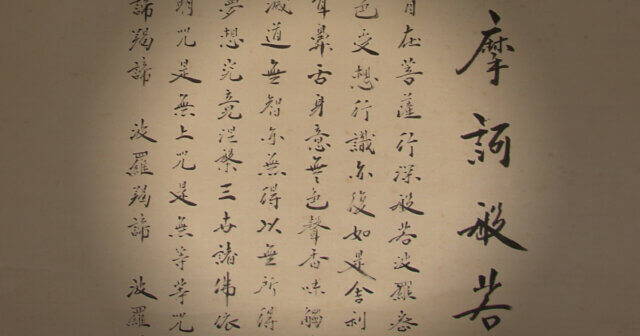 摩訶般若
自在菩薩行深般若波羅蜜
色受想行識亦復如是舍利
耳鼻舌身意無色聲香味觸
滅道無智亦無得以無所得
夢想究竟涅槃三世諸佛依
明咒是無上咒是無等等咒
諦羯諦 波羅羯諦 波羅